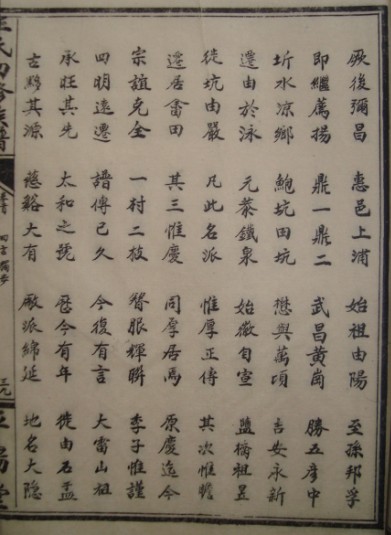 厥後彌昌 惠邑上浦 始祖由陽 至孫邦孚
即繼薦揚 鼎一鼎二 武昌黃崗 勝五彥中
圻水凉鄉 鮑坑田坑 懋與萬項 吉安永新
遷由於泳 元蔡鐵泉 始徽自宣 監祖昱
徒坑由嚴 凡此名派 惟厚正傳 其次惟瞻
遷居畬田 其三惟慶 同厚居馬 原慶迄今
宗誼克全 一村二枝 簪服輝聯 季子惟謹
四明遠遷 譜傳已久 今復有言 大雷山祖
承旺其先 太和之號 歷今有年 徙由石盂
古黟其源 慈谿大有 厥派綿延 地名大隱
氏四修族譜 首 四言獨步 三九 堂